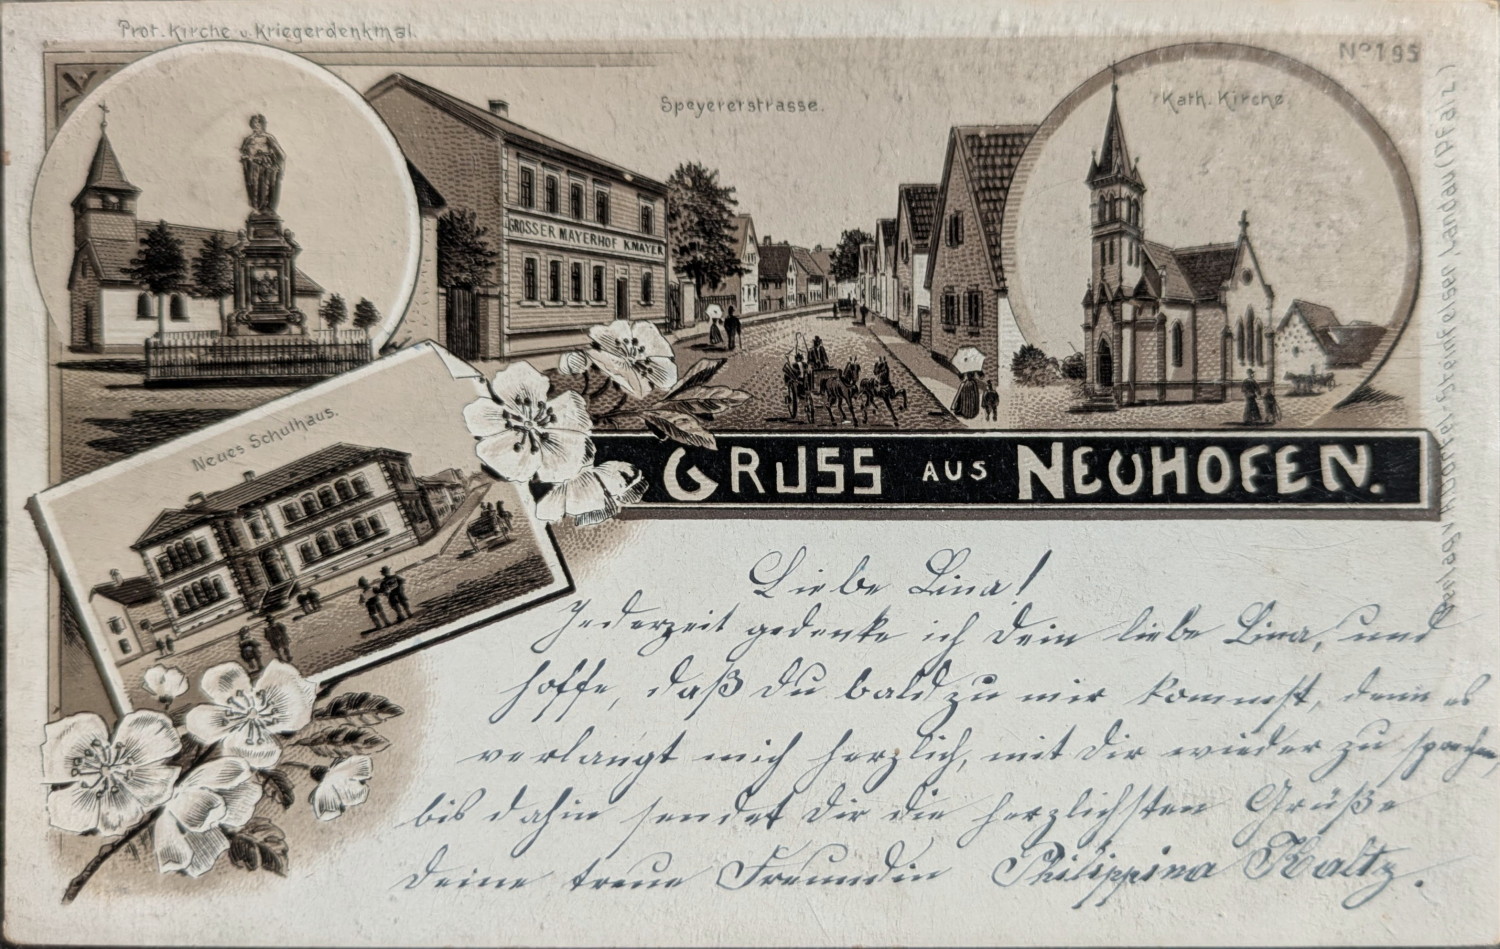 Prot. Kirche u. Kriegerdenkmal.
No 195
Speyererstrasse.
Kath. Kirche
GROSSER MAYERHOF K. MAYER
Neues Schulhaus.
GRUSS AUS NEUHOFEN.
Liebe Lina!
Jederzeit gedenke ich Dein liebe Lina, und
hoffe, daß Du bald zu mir kommst, denn es
verlangt mich herzlich, mit Dir wieder zu sprechen,
bis dahin sendet Dir die herzlichsten Grüße
Deine treue Freundin Philippina Kaltz.
Verlag v. Steinfelder, Landau (Pfalz)